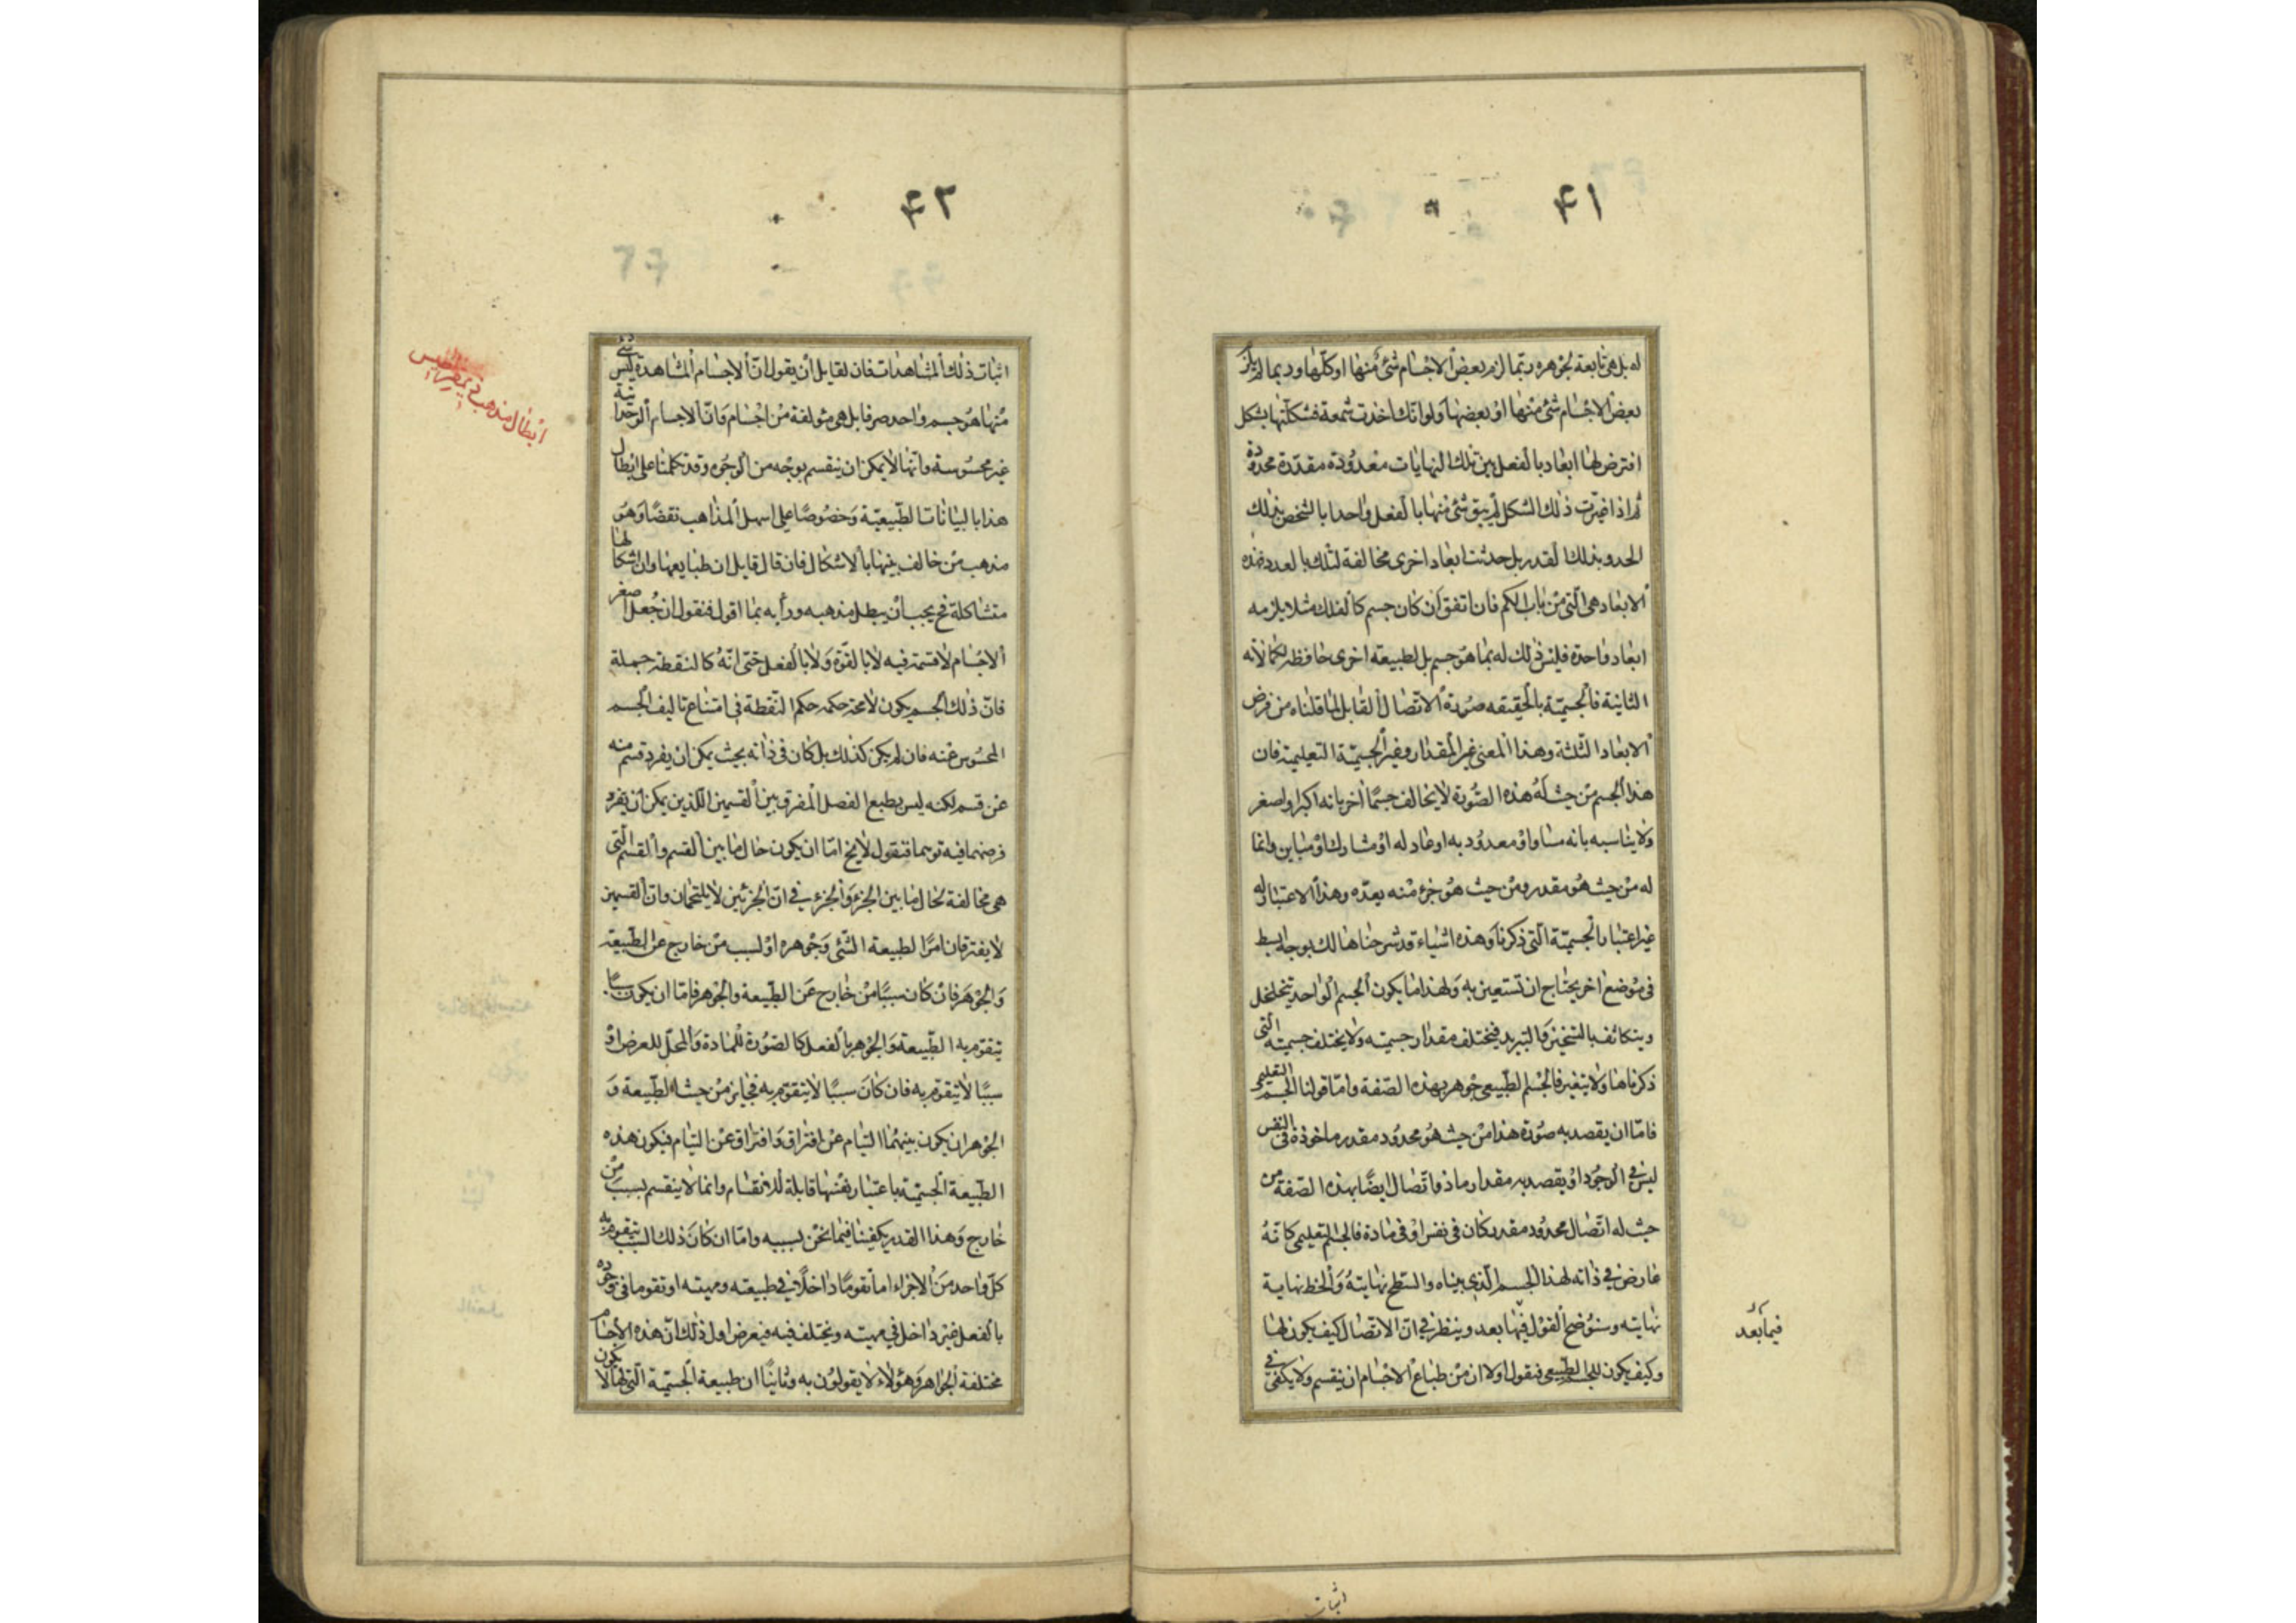 ۴۱
له بل هى تابعة لجوهره وربما لزم بعض الاجسام شئ منها او كلها وربما لم يلزم
بعض الاجسام شئ منها او بعضها ولو انك اخذت شمعة فشكلتها بشكل
افترض لها ابعاد بالفعل بين تلك النهايات معدودة مقدرة محدودة
ثم اذا غيرت ذلك الشكل لم يبق شئ منها بالفعل واحدا بالشخص بذلك
الحد وبذلك القدر بل حدثت ابعاد اخرى مخالفة لتلك بالعدد فهذه
الابعاد هى التى من باب الكم فان اتفق ان كان جسم كالفلك مثلا يلزمه
ابعاد واحدة فليس ذلك له بما هو جسم بل لطبيعة اخرى حافظة لكمالاته
الثانية فالجسمية بالحقيقه صورة الاتصال القابل لما قلناه من فرض
الابعاد الثلثة وهذا المعنى غير المقدار وغير الجسمية التعليمية فان
هذا الجسم من حيث له هذه الصورة لا يخالف جسما اخر بانه اكبر او اصغر
ولا يناسبه بانه مساو او معدود به او عاد له او مشارك او مباين وانما
له من حيث هو مقدر ومن حيث هو جزء منه يعده وهذا الاعتبار له
غير اعتبار الجسمية التى ذكرنا وهذه اشياء قد شرحناها لك بوجه ابسط
فى موضع اخر يحتاج ان تستعين به ولهذا ما يكون الجسم الواحد يتخلخل
ويتكاثف بالتسخين والتبريد فيختلف مقدار جسميته ولا يختلف جسميته التى
ذكرناها ولا يتغير فالجسم الطبيعى جوهر بهذه الصفة واما قولنا الجسم التعليمى
فاما ان يقصد به صورة هذا من حيث هو محدود مقدر ماخوذة فى النفس
ليس فى الوجود او يقصد به مقدار ما ذو اتصال ايضا بهذه الصفة من
حيث له اتصال محدود مقدر كان فى نفس او فى مادة فالجسم التعليمى كانه
عارض فى ذاته لهذا الجسم الذى بيناه والسطح نهايته والخط نهاية
نهايته وسنوضح القول فيها بعد وينظر فى ان الاتصال كيف يكون لها
وكيف يكون للجسم الطبيعى فنقول اولا ان من طباع الاجسام ان ينقسم ولا يكفى فى
فيما بعد
اثبات
۴۲
اثبات ذلك المشاهدات فان لقايل ان يقول ان الاجسام المشاهدة ليس شئ
منها هو جسم واحد صرفا بل هى مؤلفة من اجسام وان الاجسام الوحدانية
غير محسوسة وانها لا يمكن ان ينقسم بوجه من الوجوه وقد تكلمنا على ابطال
هذا بالبيانات الطبيعية وخصوصا على اسهل المذاهب نقضا وهو
مذهب من خالف بينها بالاشكال فان قال قايل ان طبايعها واشكالها
متشاكلة فح يجب ان يبطل مذهبه ورأيه بما اقول فنقول ان جعل اصغر
الاجسام لا قسمة فيه لا بالقوة ولا بالفعل حتى انه كالنقطة جملة
فان ذلك الجسم يكون لا محة حكمه حكم النقطة فى امتناع تاليف الجسم
المحسوس عنه فان لم يكن كذلك بل كان فى ذاته بحيث يمكن ان يفرد قسم منه
عن قسم لكنه ليس يطيع الفصل المفرق بين القسمين الذين يمكن ان يفرد
فرضهما فيه توهما فنقول لا يخ اما ان يكون حال ما بين القسم والقسم التى
هى مخالفة لحال ما بين الجزء والجزء فى ان الجزئين لا يلتحمان وان القسمين
لا يفترقان امرا لطبيعة الشئ وجوهره او لسبب من خارج عن الطبيعة
والجوهر فان كان سببا من خارج عن الطبيعة والجوهر فاما ان يكون سببا
يتقوم به الطبيعة والجوهر بالفعل كالصورة للمادة والمحل للعرض او
سببا لا يتقوم به فان كان سببا لا يتقوم به فجايز من حيث الطبيعة و
الجوهر ان يكون بينهما التيام عن افتراق وافتراق عن التيام فيكون هذه
الطبيعة الجسمية باعتبار نفسها قابلة للانقسام وانما لا ينقسم بسبب من
خارج وهذا القدر يكفينا فيما نحن بسبيه واما ان كان ذلك السبب يتقوم به
كل واحد من الاجزاء اما تقوما داخلا فى طبيعته وميته او تقوما فى وجوده
بالفعل غير داخل فى ميته ويختلف فيه فيعرض اول ذلك ان هذه الاجسام
مختلفة الجواهر وهؤلاء لا يقولون به وثانيا ان طبيعة الجسمية التى لها لا يكون
ابطال مذهب ذيمقراطيس